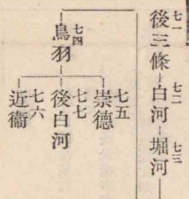 七一 後三條
七二 白河
七三 堀河
七四 鳥羽
七五 崇德
七七 後白河
七六 近衞